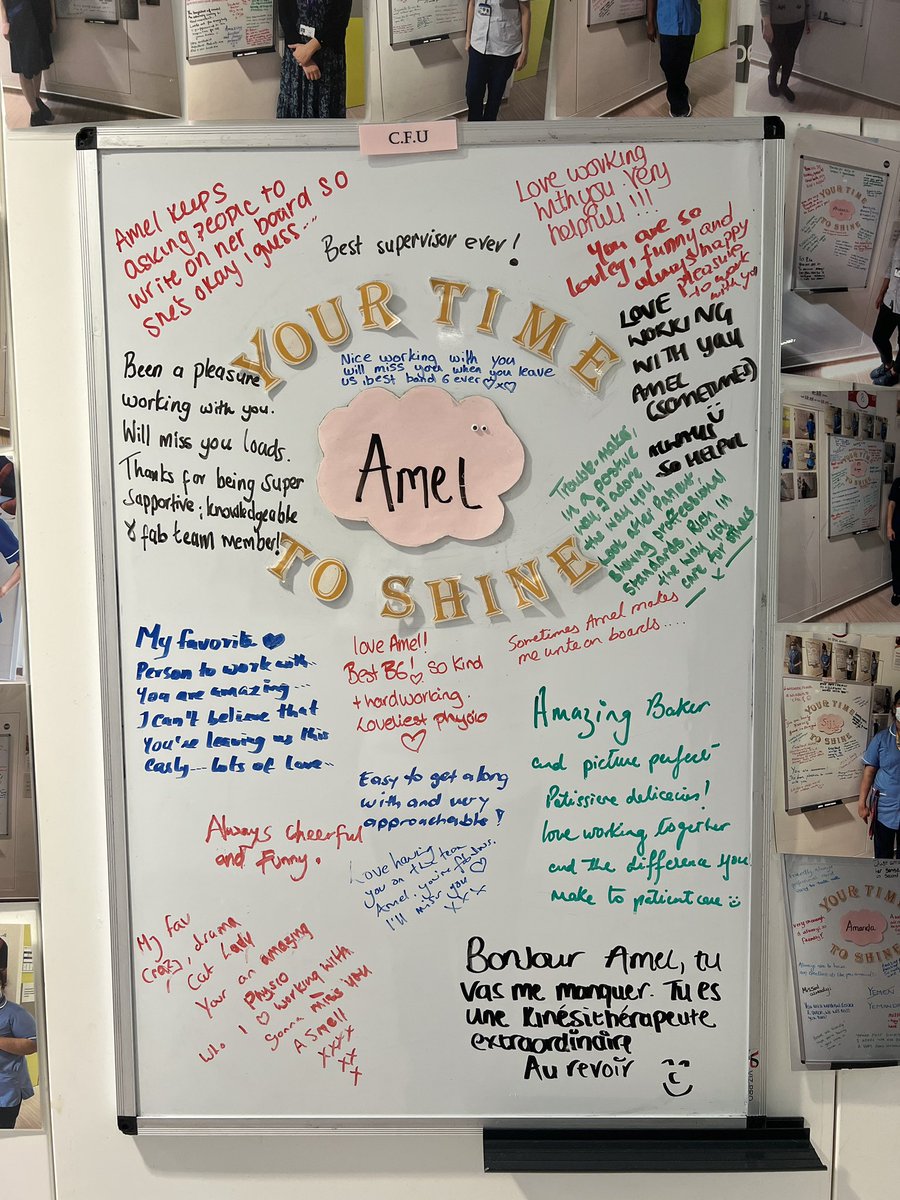 C.F.U
Amel keeps
asking people to
write on her board so
she's okay I guess...
Best supervisor ever!
Love working
with you. Very
helpful!!!
You are so
lovley, funny and
always happy
pleasure
to work
with you
YOUR TIME
Nice working with you
will miss you when you leave
us, best band 6 ever ♡x♡
LOVE
WORKING
WITH YOU
AMEL
(SOMETIMES)
ALWAYS
SO HELPFUL
Been a pleasure
working with you.
Will miss you loads.
Thanks for being super
supportive, knowledgeable
& fab team member!
Amel
Trouble-maker,
in a positive
way, I adore
the way you
look after
professional
standards, Rich in
the way you
care for others
TO SHINE
My favorite ♥
Person to work with..
You are amazing...
I can't believe that
You're leaving us this
early... lots of love..
love Amel!
Best B6! ♡ so kind
+ hardworking.
Loveliest physio
♡
Sometimes Amel makes
me write on boards....
Amazing Baker
and picture perfect
Patissiere delicacies!
love working together
and the difference you
make to patient care
Easy to get along
with and very
approachable!
Always cheerful
and funny.
Love having
you on the team
Amel. you're fabulous.
I'll miss you! ♡
xxx
My fav
crazy, drama
Cat Lady
Your an amazing
Physio
who I ♡ working with
gonna miss you
A smell
xxxx
xx
x
Bonjour Amel, tu
vas me manquer. Tu es
une kinésithérapeute
extraordinaire
Au revoir
YOUR TIME
TO SHINE
YOUR TIME
TO SHINE
YOUR TIME
Amanda
TO SHINE